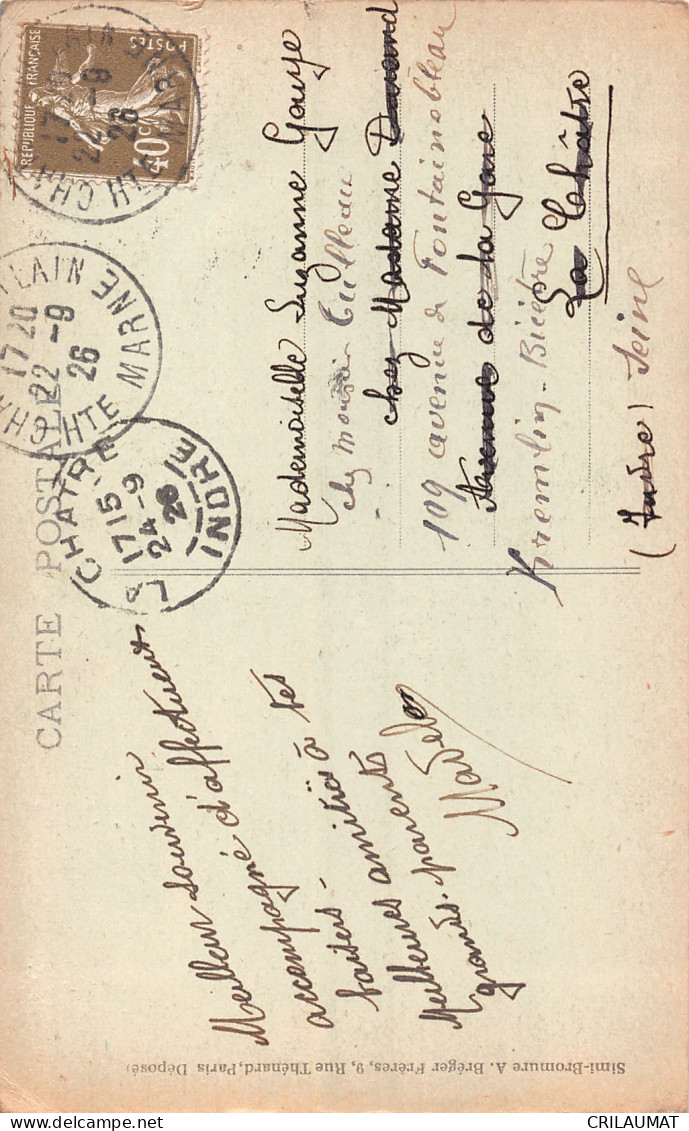 CARTE POSTALE
Meilleur souvenir
accompagné d'affectueux
baisers -
amitiés à tes
Meilleures amitiés
grands-parents
Madel
REPUBLIQUE FRANÇAISE
POSTES
40c
17 20
22 -9
26
HTE MARNE
LA CHATRE
17 15
24 -9
26
INDRE
Mademoiselle Suzanne Gouye
chez monsieur Tulleau
chez Madame Durand
109 avenue de Fontainebleau
Avenue de la Gare
Kremlin-Bicêtre
La Châtre
(Indre) Seine
Simi-Bromure A. Bréger Frères, 9, Rue Thénard, Paris Déposé)
CRILAUMAT